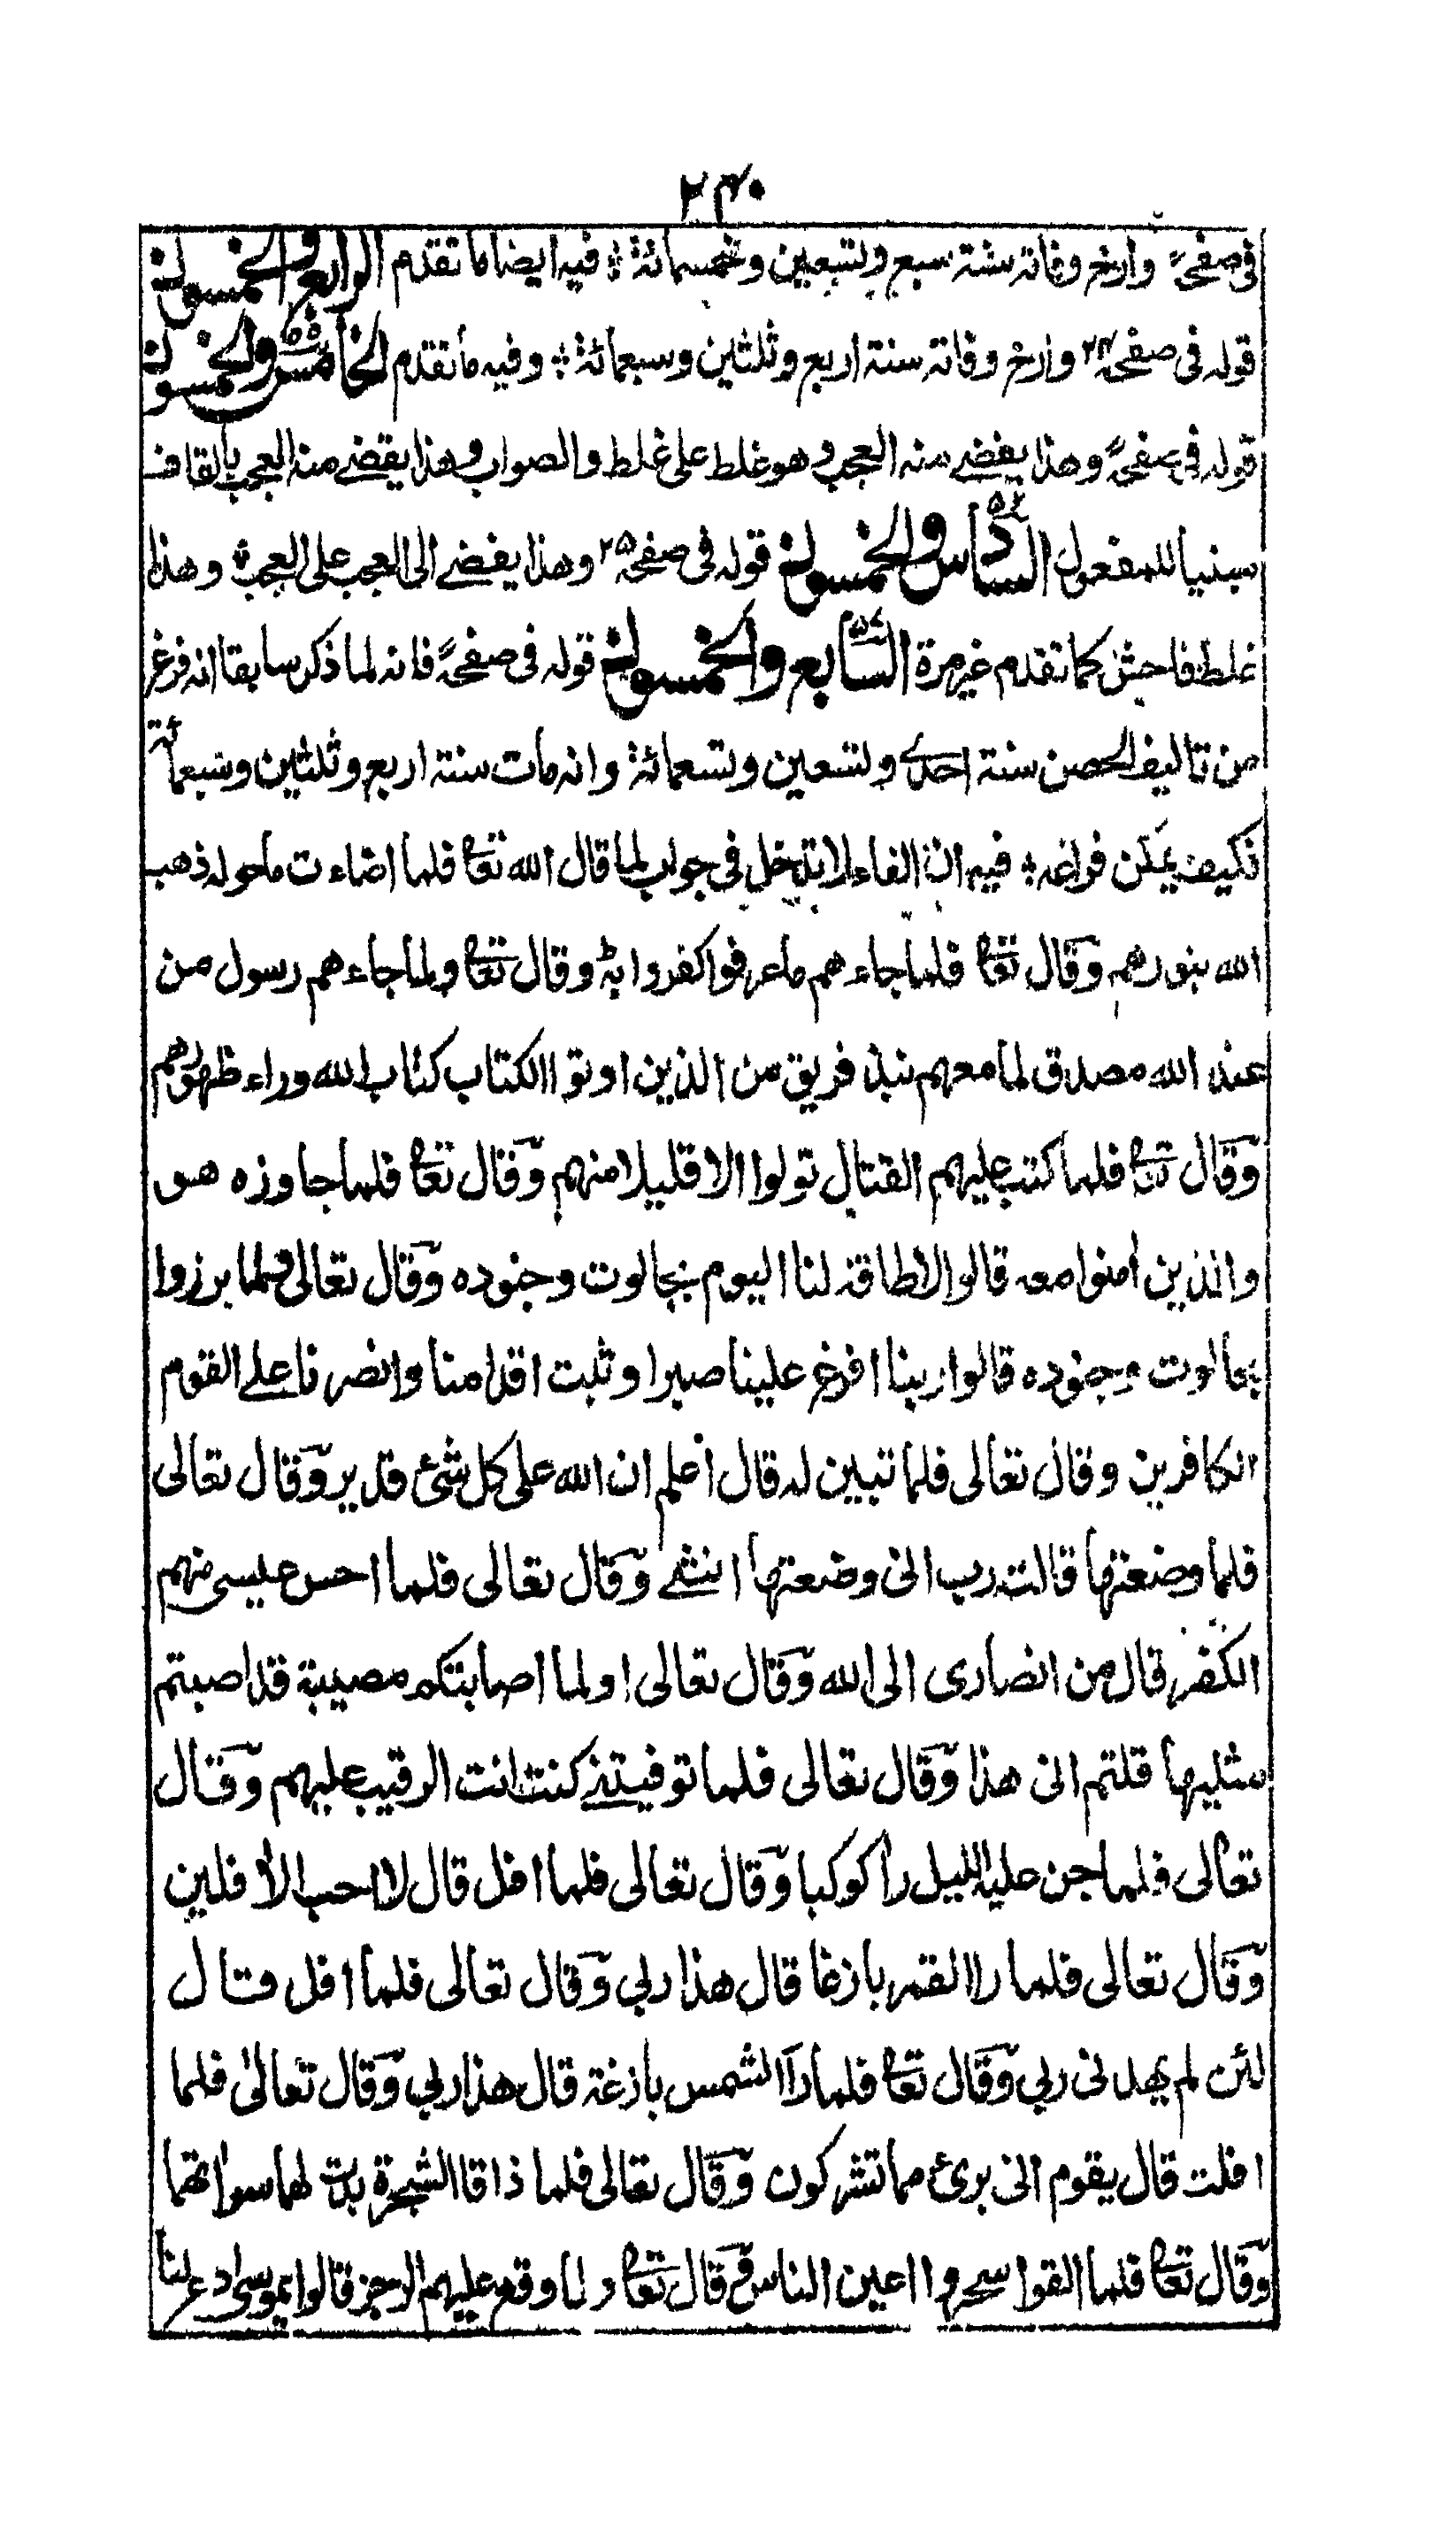 ٢٤٠
في صفحة وارخ وفاته سنة سبع وتسعين وخمسمائة ؛ فيه ايضا ما تقدم الرابع والخمسون
قوله في صفحه ٢٤ وارخ وفاته سنة اربع وثلثين وسبعمائة ؛ وفيه ما تقدم الخامس والخمسون ٥٥
قوله في صفحة وهذا يفضے منه العجب وهو غلط على غلط والصواب وهذا يقضے منه العجب بالقاف
مبنيا للمفعول السادس والخمسون ٥٦ قوله في صفحه ٢٥ وهذا يفضے الى العجب على العجب ؛ وهذا
غلط فاحش كما تقدم غير مرة السابع والخمسون ٥٧ قوله في صفحة فانه لما ذكر سابقا انه فرغ
من تاليف الحصن سنة احدے وتسعين وتسعمائة وانه مات سنة اربع وثلثين وسبعمائة
فكيف يمكن فراغه ؛ فيه ان الفاء لا تدخل في جواب لما قال الله تعا فلما اضاءت ما حوله ذهب
الله بنورهم وقال تعا فلما جاءهم ما عرفوا كفروا به وقال تعا ولما جاءهم رسول من
عند الله مصدق لما معهم نبذ فريق من الذين اوتوا الكتاب كتاب الله وراء ظهورهم
وقال تعا فلما كتب عليهم القتال تولوا الا قليلا منهم وقال تعا فلما جاوزه هو
والذين امنوا معه قالوا لا طاقة لنا اليوم بجالوت وجنوده وقال تعالى ولما برزوا
بجالوت وجنوده قالوا ربنا افرغ علينا صبرا وثبت اقدامنا وانصرنا على القوم
الكافرين وقال تعالى فلما تبين له قال اعلم ان الله على كل شئ قدير وقال تعالى
فلما وضعتها قالت رب انى وضعتها انثے وقال تعالى فلما احس عيسى منهم
الكفر قال من انصارى الى الله وقال تعالى اولما اصابتكم مصيبة قد اصبتم
مثليها قلتم انى هذا وقال تعالى فلما توفيتنے كنت انت الرقيب عليهم وقال
تعالى فلما جن عليه الليل را كوكبا وقال تعالى فلما افل قال لا احب الأفلين
وقال تعالى فلما را القمر بازغا قال هذا ربي وقال تعالى فلما افل قال
لئن لم يهدنى ربي وقال تعا فلما رآ الشمس بازغة قال هذا ربي وقال تعالى فلما
افلت قال يقوم انى برئ مما تشركون وقال تعالى فلما ذاقا الشجرة بدت لهما سواتهما
وقال تعا فلما القوا سحروا اعين الناس وقال تعا ولما وقع عليهم الرجز قالوا يموسى ادع لنا